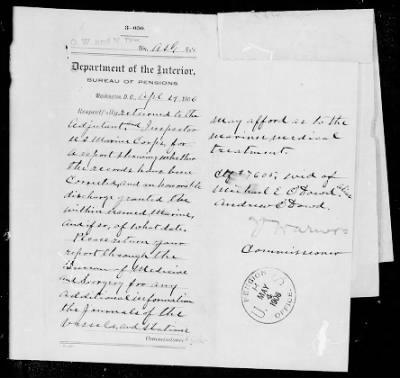 3-050.
O. W. and N. Div.
No.
Department of the Interior,
BUREAU OF PENSIONS
Washington, D.C., Apl 19, 1906
Respectfully returned to the
Adjutant and Inspector
U S Marine Corps, for
a report showing whether
the records have been
Corrected, and an honorable
discharge granted the
within named Marine,
and if so, of what date.
Please return your
report through the
Bureau of Medicine
and Surgery for any
additional information
the Journals of the
vessels, and Stations
Commissioner
may afford as to the
marines medical
treatment.
7605, wid of
Michael E. O'Dowd, alias
Andrew O'Dowd.
Commissioner
U.S. PENSION OFFICE.
MAY
1906